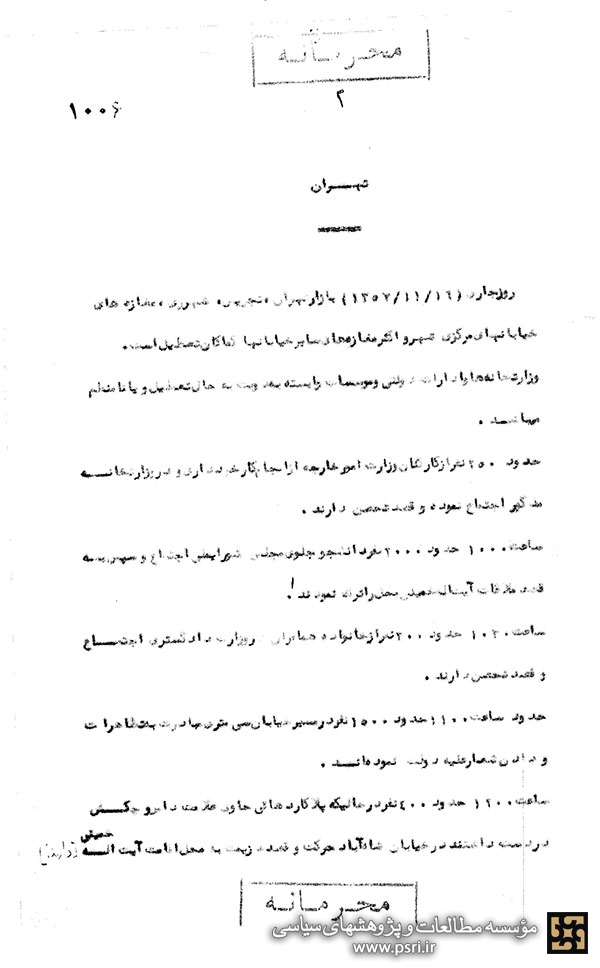 محرمانه
۲
۱۰۰۶
تهران
روز جاری (۱۳۵۷/۱۱/۱۶) بازار تهران، تجریش، شهرری، مغازه های
خیابانهای مرکزی شهر و اکثر مغازه‌های سایر خیابانها کماکان تعطیل است.
وزارتخانه‌ها و ادارات دولتی و موسسات وابسته بدولت به حال تعطیل و یا نامنظم
میباشد.
حدود ۲۵۰ نفر از کارکنان وزارت امور خارجه از انجام کار خودداری و در وزارتخانه
مذکور اجتماع نموده و قصد تحصن دارند.
ساعت ۱۰۰۰ حدود ۲۰۰۰ نفر دانشجو جلوی مجلس شورایملی اجتماع و سپس به
قصد ملاقات آیت‌اله خمینی محل را ترک نمودند.
ساعت ۱۰۳۰ حدود ۲۰۰ نفر از خانواده همافران در وزارت دادگستری اجتماع
و قصد تحصن دارند.
حدود ساعت ۱۱۰۰ حدود ۱۵۰۰ نفر در مسیر خیابان سی متری مبادرت به تظاهرات
و دادن شعار علیه دولت نموده‌اند.
ساعت ۱۲۰۰ حدود ۴۰۰ نفر در حالیکه پلاکاردهائی حاوی علامت داس و چکش
در دست داشتند در خیابان شاه‌آباد حرکت و قصد عزیمت به محل اقامت آیت اله خمینی
محرمانه
مؤسسه مطالعات و پژوهشهای سیاسی
www.psri.ir